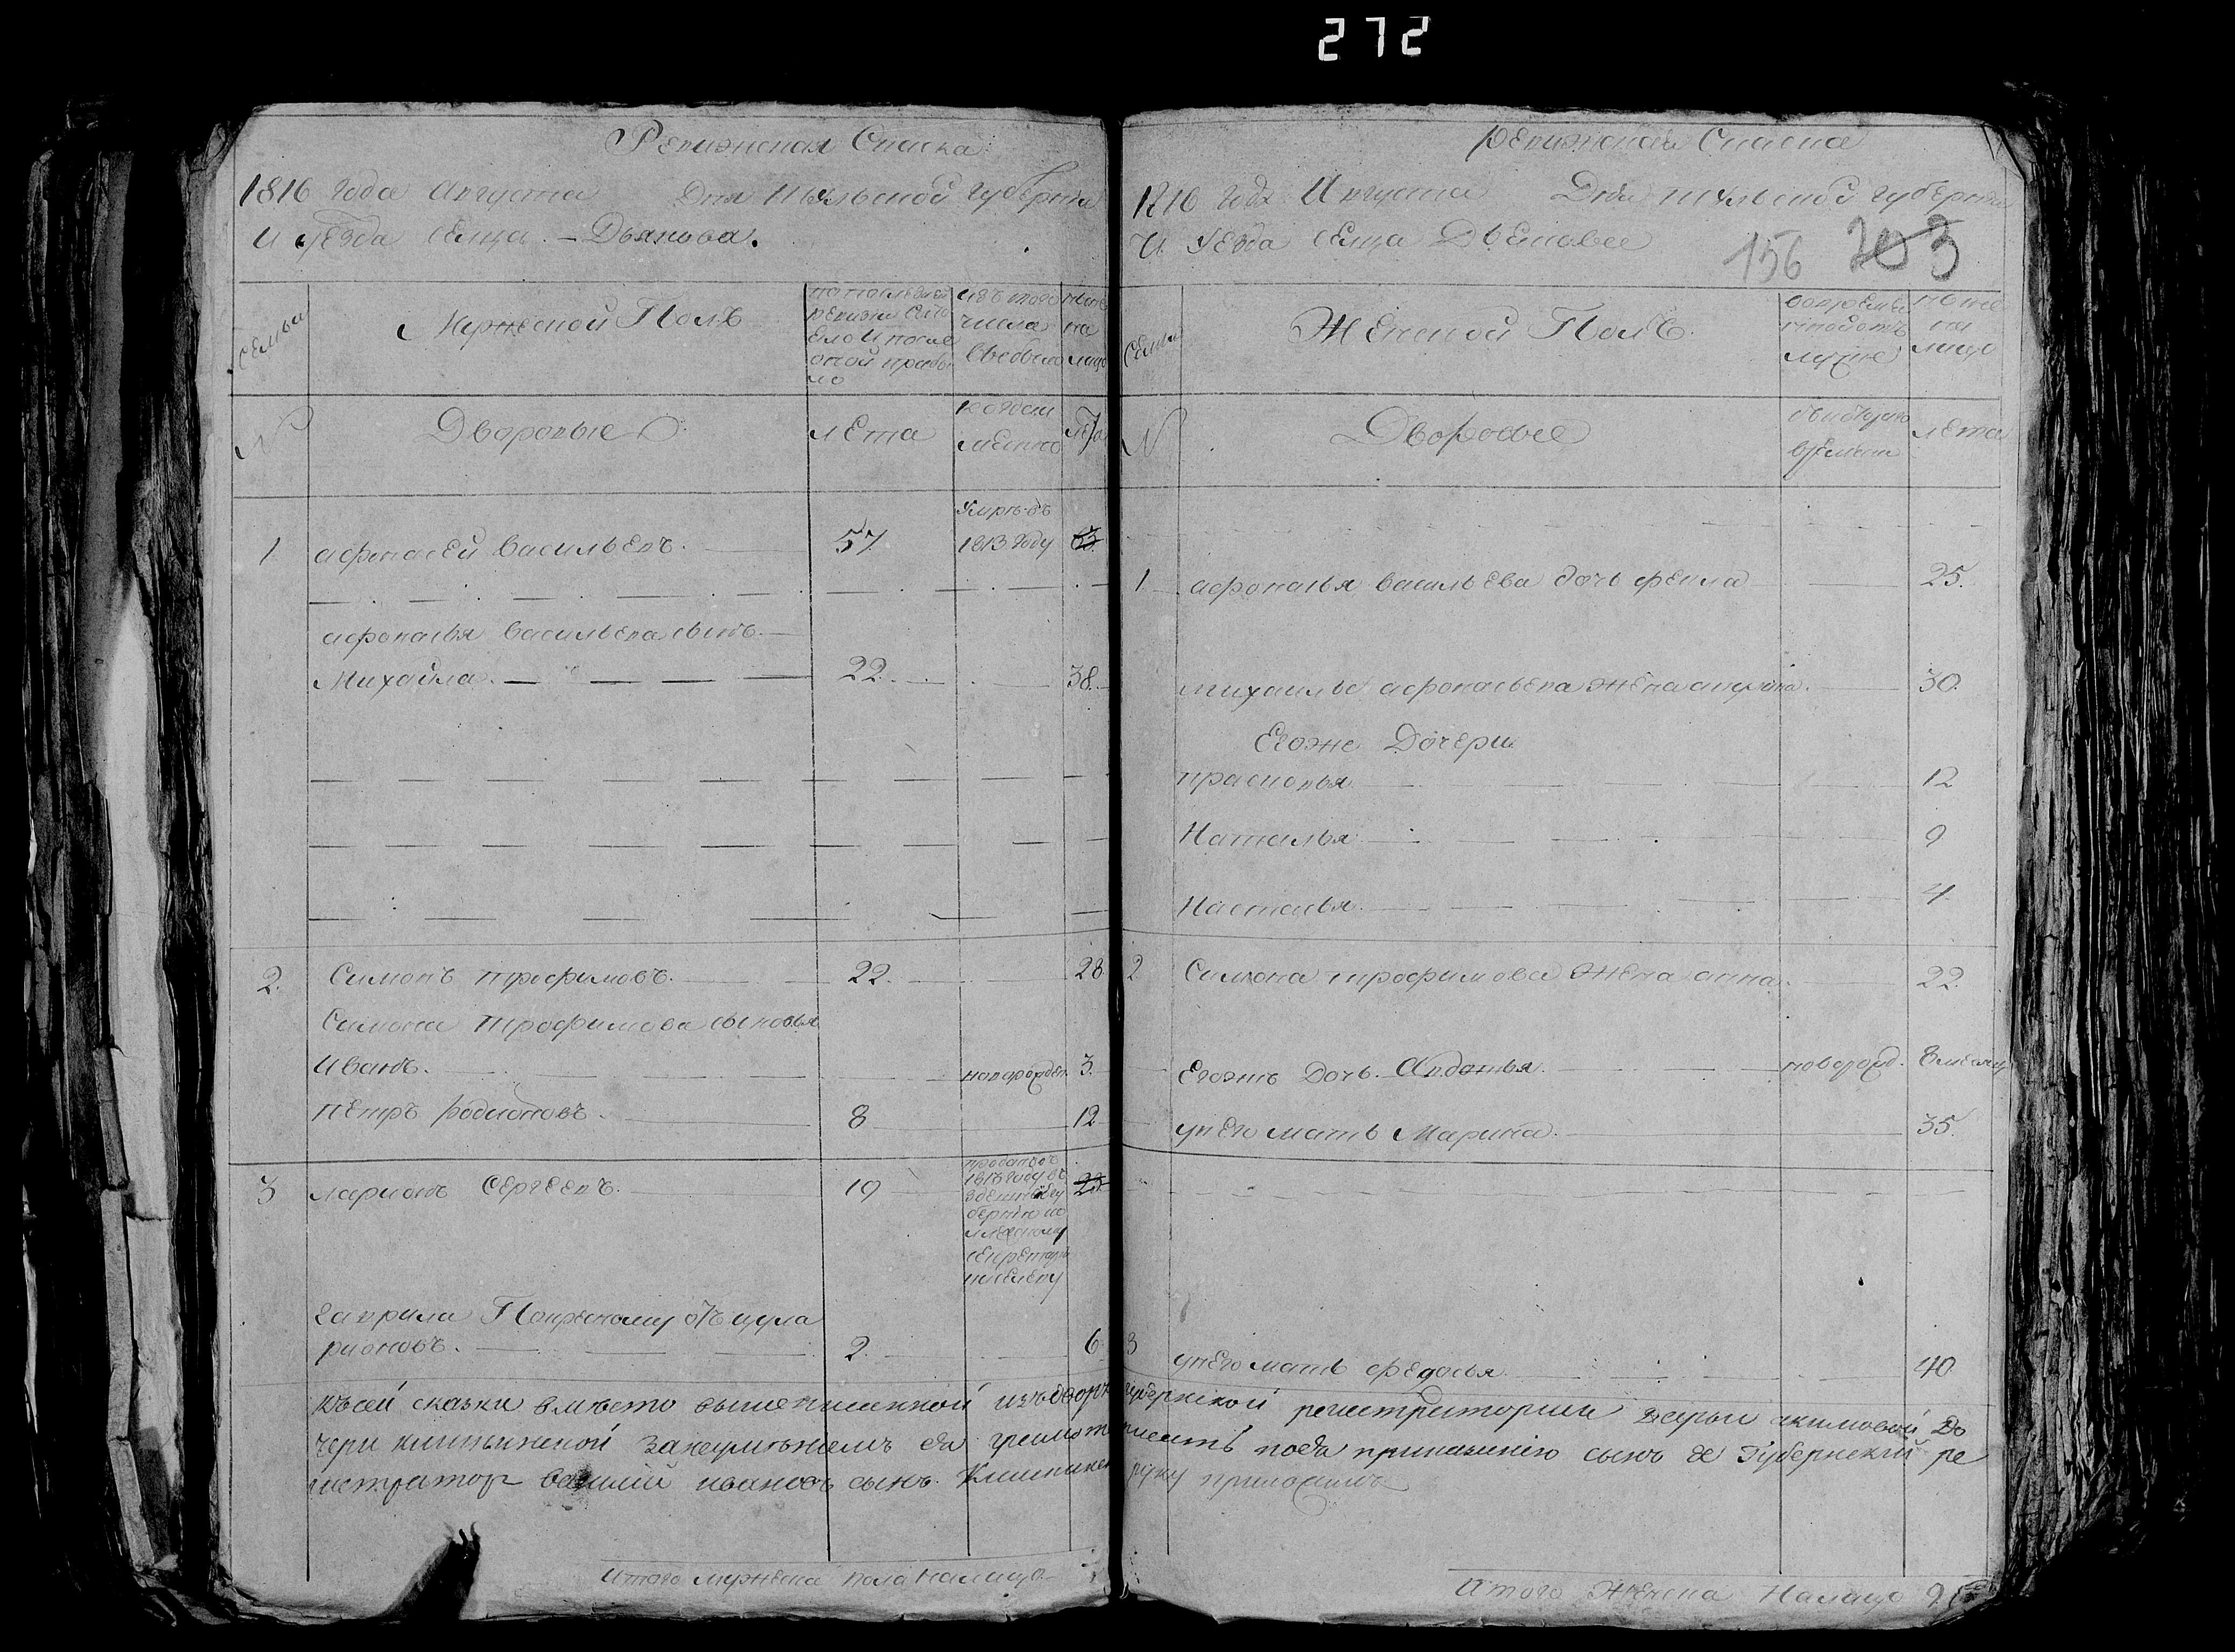 272
Ревижская Сказка
1816 года Августа Дня Тульской губерни
И уезда селца Дьякова.
семьи
Мужеской Полъ
по последней
ревизи состо
ело и после
оной прибы
ло
изъ того
числа
выбыло
ныне
на
лицо
№
Дворовые
лета
когда
имянно
лета
1 афонасей васильевъ. 57. умръ въ
1813 году 63
афонасья васильева сынъ
Михайла. 22. 38.
2. Симонъ трофимовъ. 22. 28
Симона трофимова сыновья
Иванъ. новорожден 3.
пётръ родионовъ. 8 12
3 ларионъ сергеевъ. 19 проданъ въ
1813 году въ
25
секретарю
гаврила По крестному отцу ла
рионовъ. 2. 6
Ревижская Сказка
1816 года Августа Дня тульской губерни
И уезда селца Дьякова
156 203
семьи
Женской Полъ.
во времен
ной отъ
лучке
ныне
на
лицо
№
Дворовые
съ котораго
времени
лета
1 афонасья васильева дочь фекла 25.
михаилы афонасьева жена 30.
Егоже Дочери
прасковья 12
Наталья 9
Настасья 4
2 Симона трофимова жена анна. 22.
Егожъ Дочь Авдотья новорожд. 8 месяц
у него мать Марина. 35.
3 у него мать федосья 40
къ сей сказки вместо вышеписанной губернской регистраторши дарьи акимовой до
чери за неумениемъ грамоте по ея приказанию сынъ ее Губернский ре
гистратор василий ивановъ сынъ руку приложилъ
Итого мужеска пола налицо
Итого Женска Налицо 9